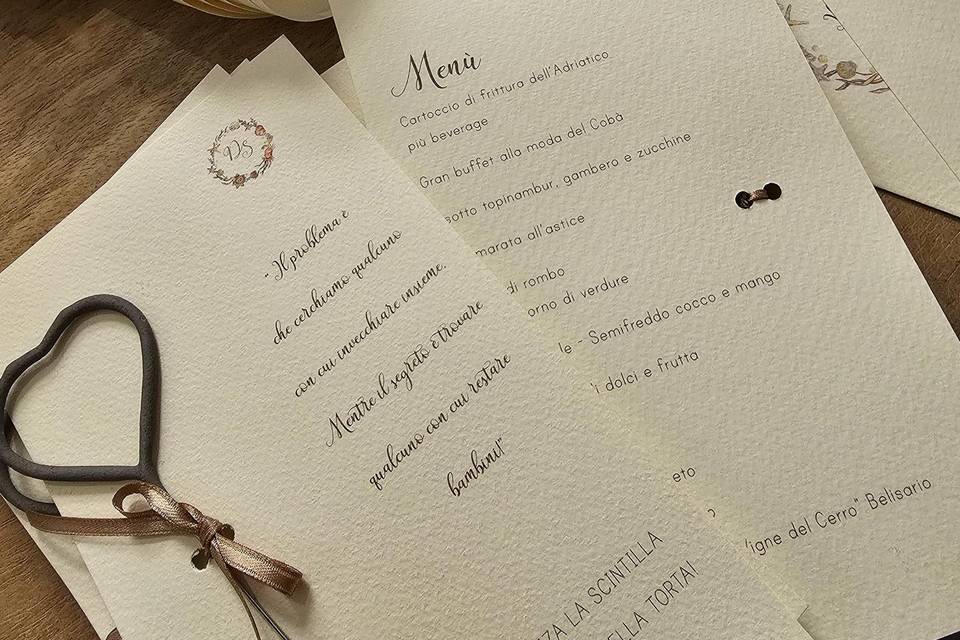 DS
- Il problema è
che cerchiamo qualcuno
con cui invecchiare insieme.
Mentre il segreto è trovare
qualcuno con cui restare
bambini!"
LA SCINTILLA
TORTA!
Menù
Cartoccio di frittura dell'Adriatico
più beverage
Gran buffet alla moda del Cobà
topinambur, gambero e zucchine
all'astice
di rombo
di verdure
- Semifreddo cocco e mango
dolci e frutta
del Cerro" Belisario